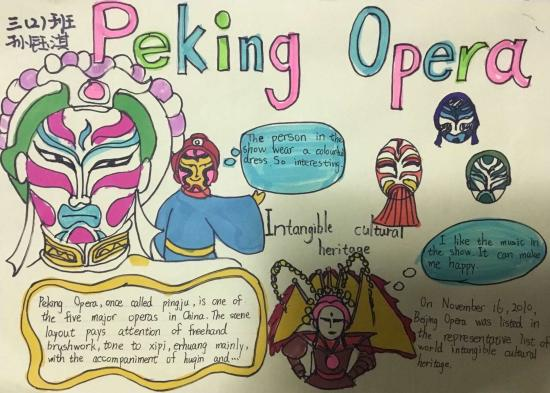 三(2)班
孙钰淇
Peking Opera
The person in the
show wear a colourful
dress. So interesting.
Intangible cultural
heritage
I like the music in
the show. It can make
me happy.
Peking Opera, once called pingju, is one of
the five major operas in China. The scene
layout pays attention of freehand
brushwork, tone to xipi, erhuang mainly,
with the accompaniment of huqin and...
On November 16, 2010,
Beijing Opera was listed in
the representative list of
world intangible cultural
heritage.